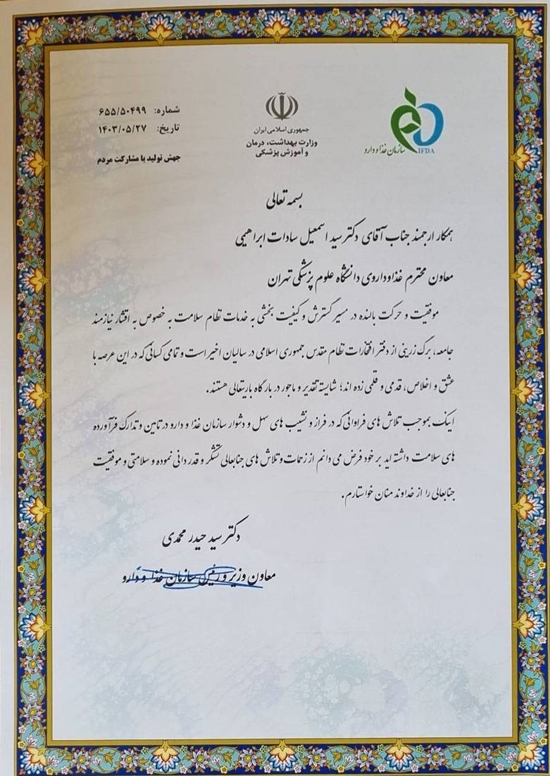 شماره: ۶۵۵/۵۰۴۹۹
تاریخ: ۱۴۰۳/۰۵/۲۷
جهش تولید با مشارکت مردم
جمهوری اسلامی ایران
وزارت بهداشت، درمان
و آموزش پزشکی
سازمان غذا و دارو IFDA
بسمه تعالی
همکار ارجمند جناب آقای دکتر سید اسمعیل سادات ابراهیمی
معاون محترم غذا و داروی دانشگاه علوم پزشکی تهران
موفقیت و حرکت بالنده در مسیر گسترش و کیفیت بخشی به خدمات نظام سلامت به خصوص به اقشار نیازمند
جامعه، برگ زرینی از دفتر افتخارات نظام مقدس جمهوری اسلامی در سالیان اخیر است و تمامی کسانی که در این عرصه با
عشق و اخلاص، قدمی و قلمی زده اند؛ شایسته تقدیر و ماجور در بارگاه باریتعالی هستند.
اینک بموجب تلاش های فراوانی که در فراز و نشیب های سهل و دشوار سازمان غذا و دارو در تامین و تدارک فرآورده
های سلامت داشته اید بر خود فرض می دانم از زحمات و تلاش های جنابعالی تشکر و قدردانی نموده و سلامتی و موفقیت
جنابعالی را از خداوند منان خواستارم.
دکتر سید حیدر محمدی
معاون وزیر و رئیس سازمان غذا و دارو